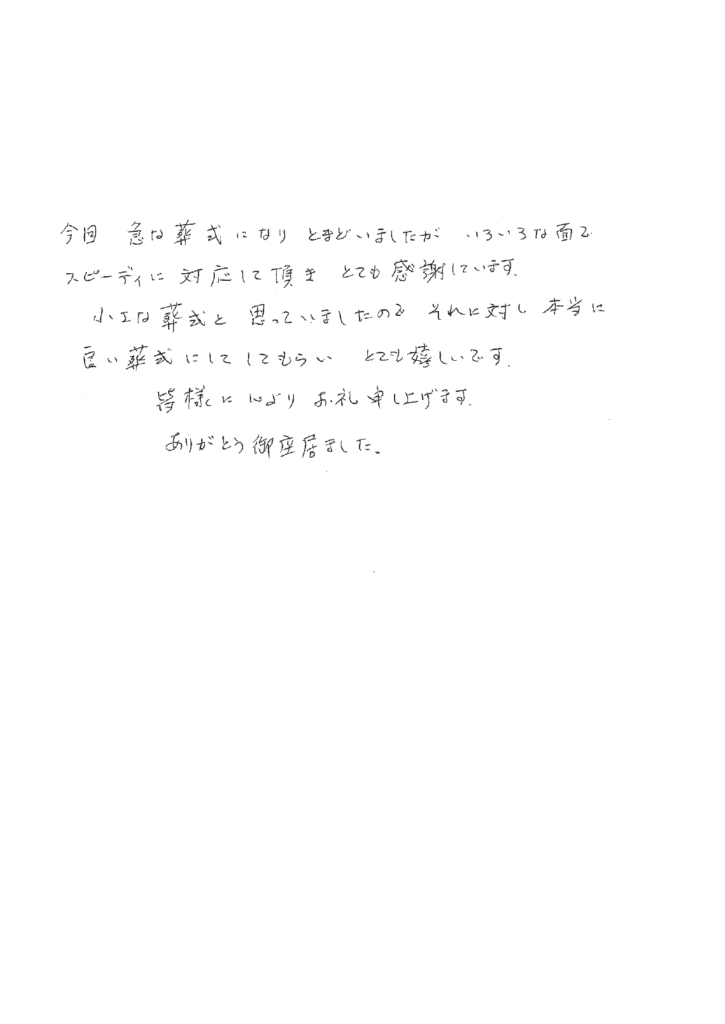 今回 急な葬式になり とまどいましたが いろいろな面で
スピーディに 対応して頂き とても感謝しています.
小さな葬式と 思っていましたので それに対し 本当に
良い葬式にして してもらい とても嬉しいです.
皆様に 心より お礼 申し上げます.
ありがとう御座居ました。